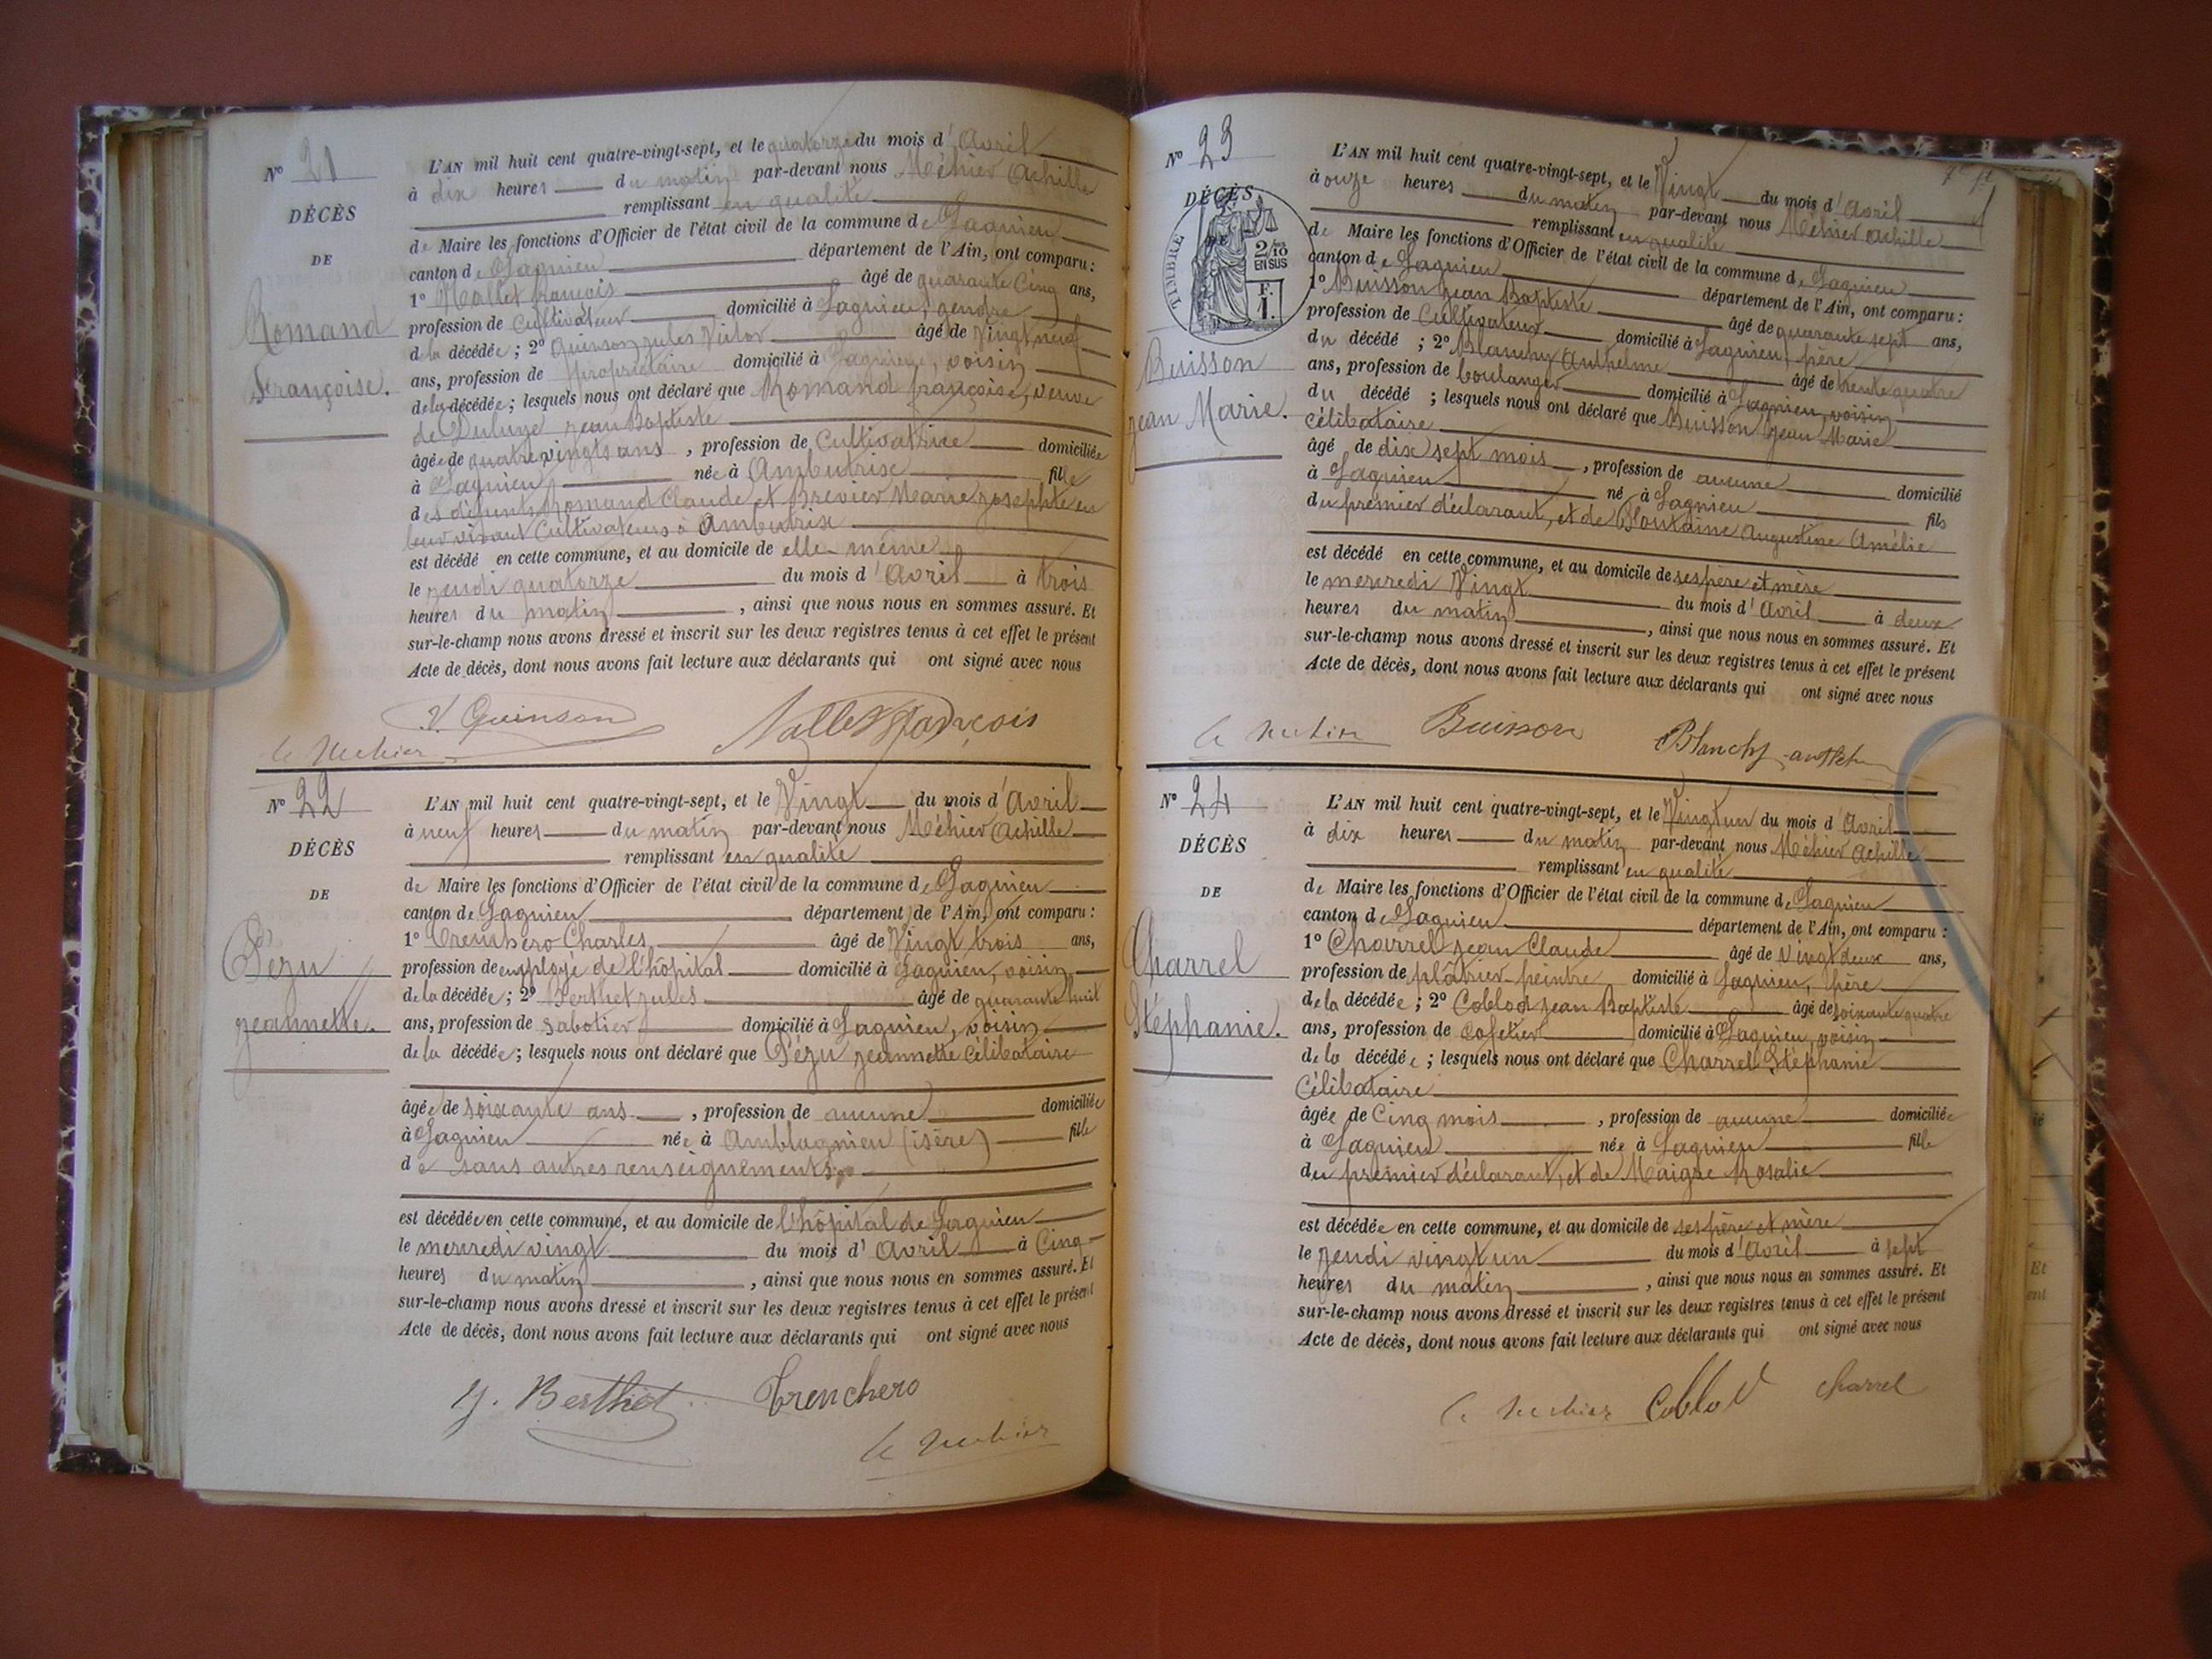 N° 21
DÉCÈS
DE
Romand
Françoise.
L'AN mil huit cent quatre-vingt-sept, et le quatorze du mois d'Avril
à dix heures du matin par-devant nous Méhier Achille
remplissant en qualité
de Maire les fonctions d'Officier de l'état civil de la commune de Lagnieu
canton de Lagnieu département de l'Ain, ont comparu :
1° Nallet François âgé de quarante cinq ans,
profession de Cultivateur domicilié à Lagnieu, gendre
de la décédée ; 2° Quinson Jules Victor âgé de Vingt neuf
ans, profession de propriétaire domicilié à Lagnieu, voisin
de la décédée ; lesquels nous ont déclaré que Romand Françoise, veuve
de Jean Baptiste
âgée de quatre vingts ans , profession de Cultivatrice domiciliée
à Lagnieu née à Ambutrix fille
des défunts Romand Claude et Brevier Marie Josephte en
leur vivant Cultivateurs à Ambutrix
est décédé en cette commune, et au domicile de elle-même
le jeudi quatorze du mois d'Avril à trois
heures du matin , ainsi que nous nous en sommes assuré. Et
sur-le-champ nous avons dressé et inscrit sur les deux registres tenus à cet effet le présent
Acte de décès, dont nous avons fait lecture aux déclarants qui ont signé avec nous
V. Quinson Nallet François
N° 22
DÉCÈS
DE
Pézu
Jeannette.
L'AN mil huit cent quatre-vingt-sept, et le Vingt du mois d'Avril
à neuf heures du matin par-devant nous Méhier Achille
remplissant en qualité
de Maire les fonctions d'Officier de l'état civil de la commune de Lagnieu
canton de Lagnieu département de l'Ain, ont comparu :
1° Charles âgé de Vingt trois ans,
profession de employé de l'hôpital domicilié à Lagnieu, voisin
de la décédée ; 2° Berthet Jules âgé de quarante huit
ans, profession de sabotier domicilié à Lagnieu, voisin
de la décédée ; lesquels nous ont déclaré que Pézu Jeannette Célibataire
âgée de soixante ans , profession de aucune domiciliée
à Lagnieu née à Amblagnieu (isère) fille
de sans autres renseignements
est décédée en cette commune, et au domicile de l'hôpital de Lagnieu
le mercredi vingt du mois d'Avril à Cinq
heures du matin , ainsi que nous nous en sommes assuré. Et
sur-le-champ nous avons dressé et inscrit sur les deux registres tenus à cet effet le présent
Acte de décès, dont nous avons fait lecture aux déclarants qui ont signé avec nous
J. Berthet Trenchero
N° 23
DÉCÈS
TIMBRE
2/10
EN SUS
F.
1.
Buisson
Jean Marie.
L'AN mil huit cent quatre-vingt-sept, et le Vingt du mois d'Avril
à onze heures du matin par-devant nous Méhier Achille
remplissant en qualité
de Maire les fonctions d'Officier de l'état civil de la commune de Lagnieu
canton de Lagnieu département de l'Ain, ont comparu :
1° Buisson Jean Baptiste âgé de quarante sept ans,
profession de Cultivateur domicilié à Lagnieu, père
du décédé ; 2° Blanchy Anthelme âgé de trente quatre
ans, profession de boulanger domicilié à Lagnieu, voisin
du décédé ; lesquels nous ont déclaré que Buisson Jean Marie
Célibataire
âgé de dix sept mois , profession de aucune domicilié
à Lagnieu né à Lagnieu fils
du premier déclarant, et de Augustine Amélie
est décédé en cette commune, et au domicile de ses père et mère
le mercredi Vingt du mois d'Avril à deux
heures du matin , ainsi que nous nous en sommes assuré. Et
sur-le-champ nous avons dressé et inscrit sur les deux registres tenus à cet effet le présent
Acte de décès, dont nous avons fait lecture aux déclarants qui ont signé avec nous
Buisson
N° 24
DÉCÈS
DE
Charrel
Stéphanie.
L'AN mil huit cent quatre-vingt-sept, et le Vingt un du mois d'Avril
à dix heures du matin par-devant nous Méhier Achille
remplissant en qualité
de Maire les fonctions d'Officier de l'état civil de la commune de Lagnieu
canton de Lagnieu département de l'Ain, ont comparu :
1° Charrel Jean Claude âgé de Vingt deux ans,
profession de plâtrier-peintre domicilié à Lagnieu, père
de la décédée ; 2° Coblod Jean Baptiste âgé de soixante quatre
ans, profession de Cafetier domicilié à Lagnieu, voisin
de la décédée ; lesquels nous ont déclaré que Charrel Stéphanie
Célibataire
âgée de Cinq mois , profession de aucune domiciliée
à Lagnieu née à Lagnieu fille
du premier déclarant, et de Maigre Rosalie
est décédée en cette commune, et au domicile de ses père et mère
le jeudi vingt un du mois d'Avril à sept
heures du matin , ainsi que nous nous en sommes assuré. Et
sur-le-champ nous avons dressé et inscrit sur les deux registres tenus à cet effet le présent
Acte de décès, dont nous avons fait lecture aux déclarants qui ont signé avec nous
Coblod Charrel